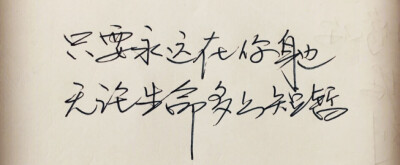 只要永远在你身边
无论生命多么短暂